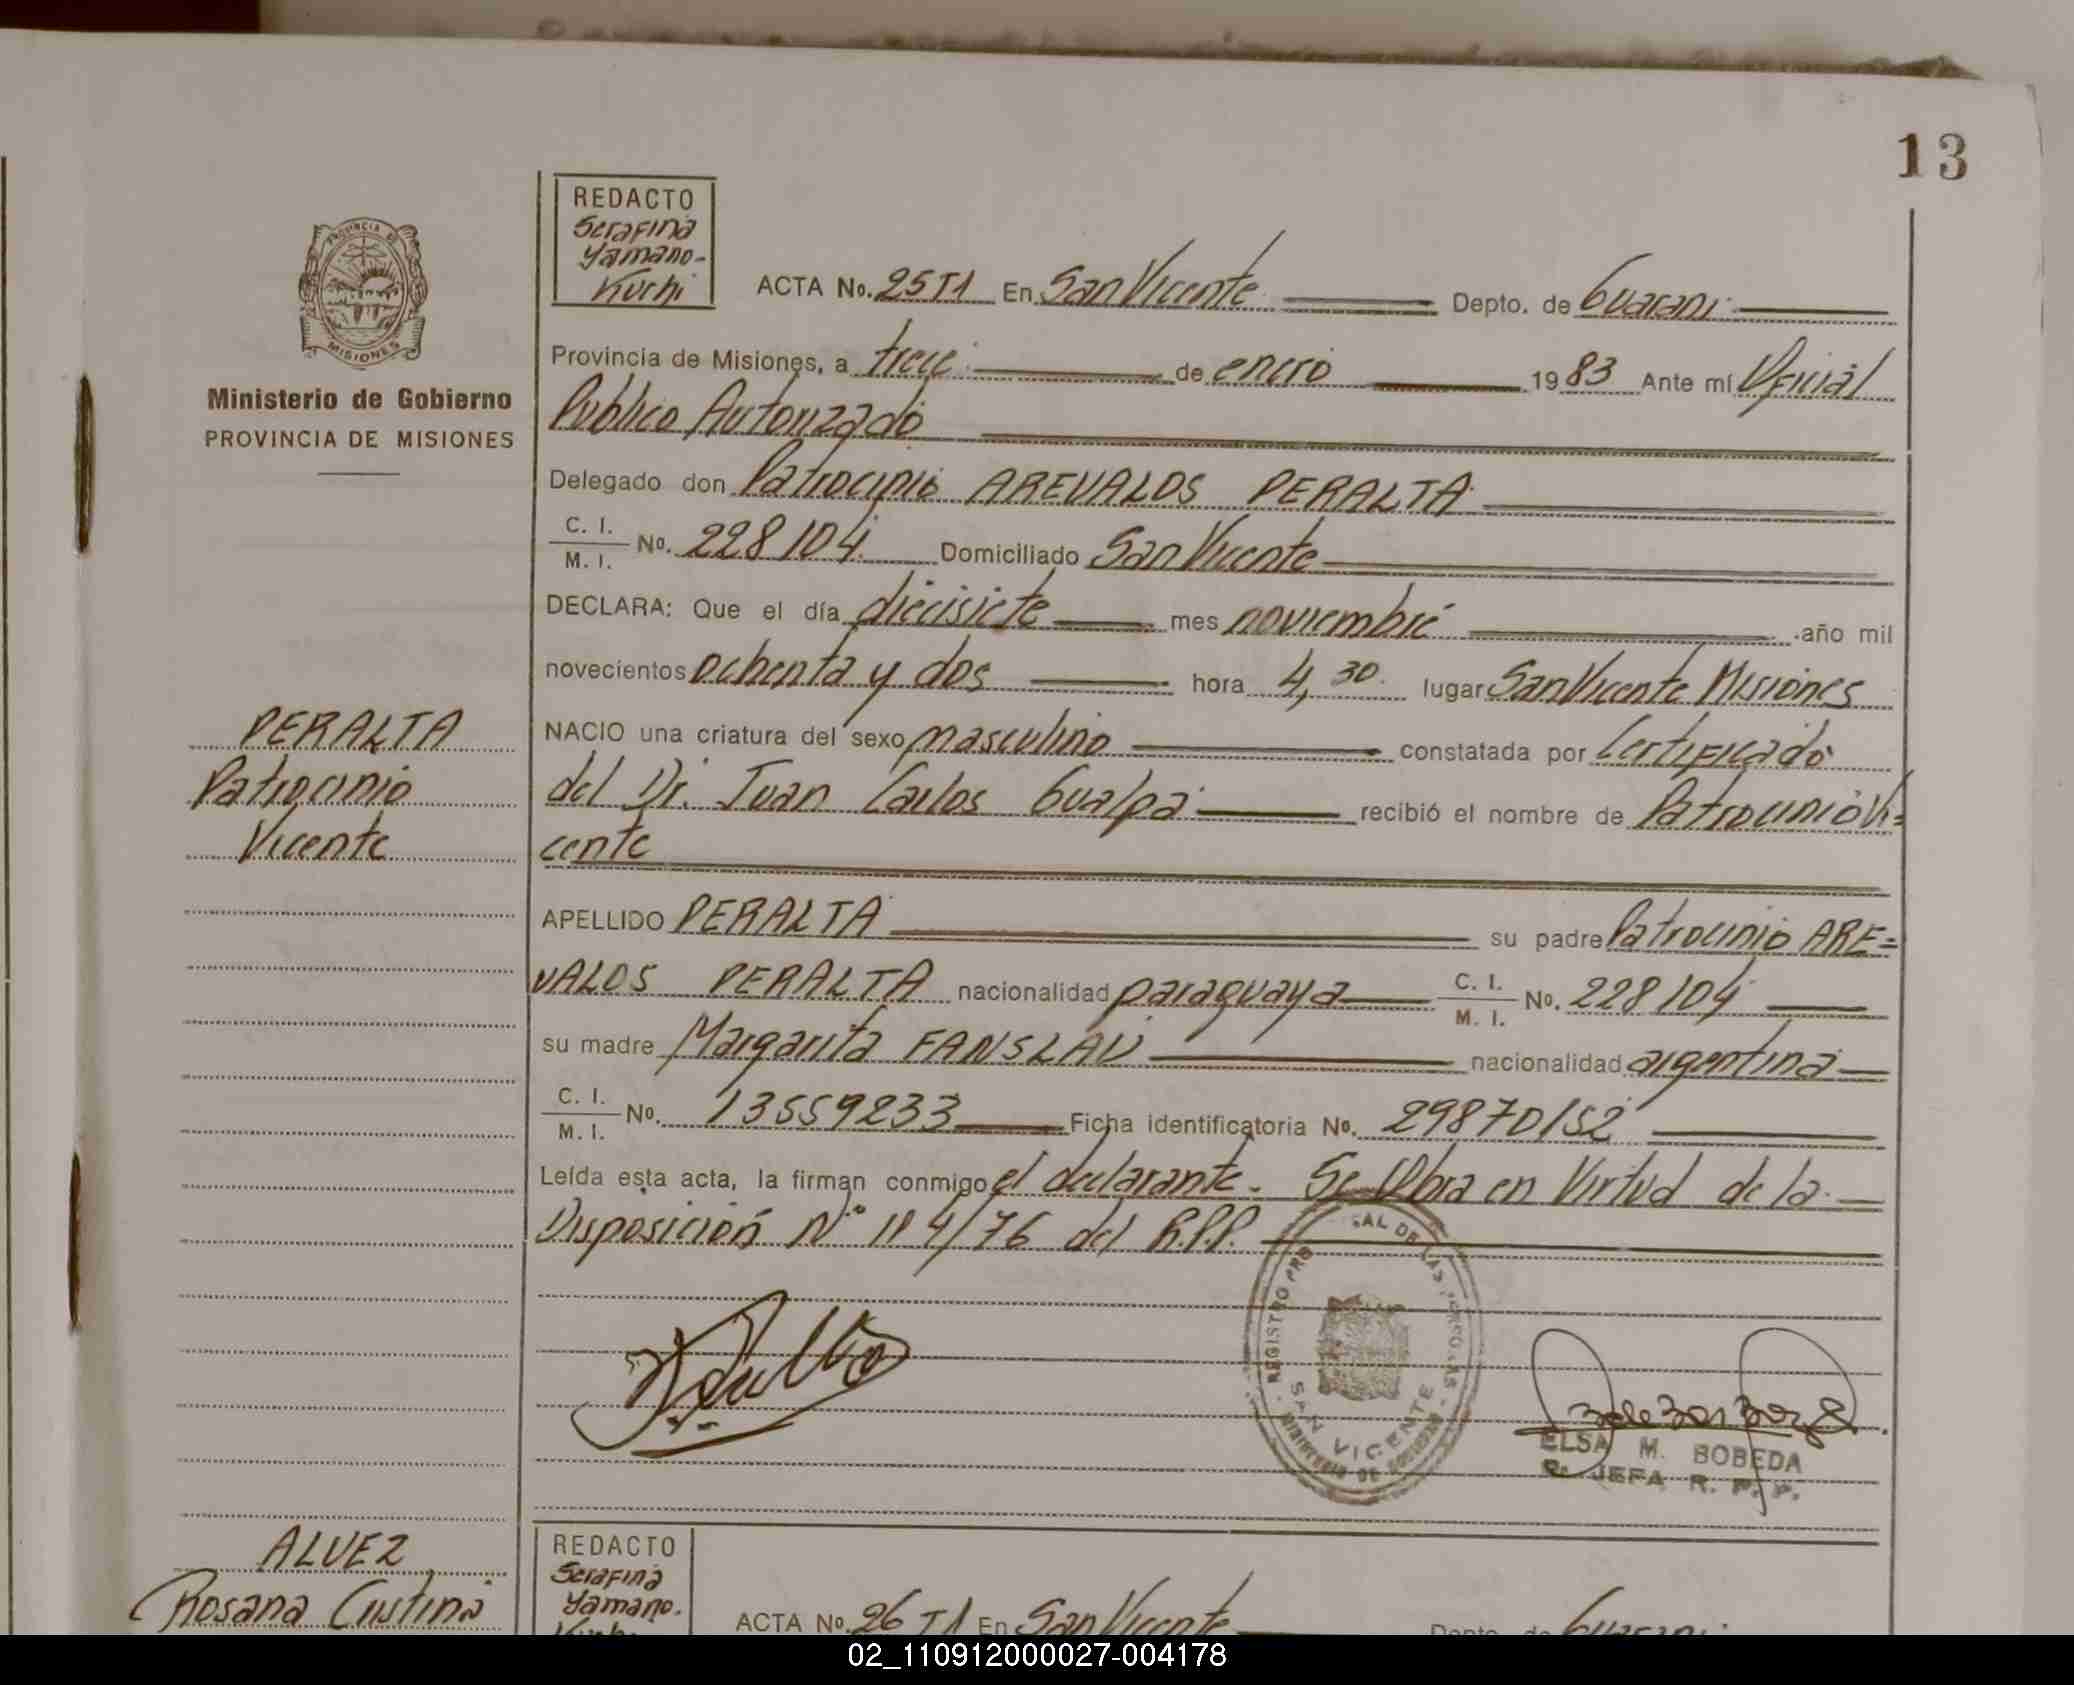 13
PROVINCIA DE
MISIONES
Ministerio de Gobierno
PROVINCIA DE MISIONES
REDACTO
Serafina
Yamano-
Kuchi
ACTA No. 25 T1 En San Vicente Depto. de Guarani
Provincia de Misiones, a trece de enero 1983 Ante mí Oficial
Publico Autorizado
Delegado don Patrocinio AREVALOS PERALTA
C. I.
M. I. No. 228104 Domiciliado San Vicente
DECLARA: Que el día diecisiete mes noviembre año mil
novecientos ochenta y dos hora 4,30 lugar San Vicente Misiones
NACIO una criatura del sexo masculino constatada por Certificado
del Dr. Juan Carlos Gualpa recibió el nombre de Patrocinio Vi=
cente
APELLIDO PERALTA su padre Patrocinio ARE=
VALOS PERALTA nacionalidad paraguaya C. I.
M. I. No. 228104
su madre Margarita FANSLAU nacionalidad argentina
C. I.
M. I. No. 13559233 Ficha identificatoria No. 29870/52
Leída esta acta, la firman conmigo el declarante. Se Obra en Virtud de la
Disposición N° 114/76 del R.P.P.
PERALTA
Patrocinio
Vicente
SAN VICENTE
ELSA M. BOBEDA
JEFA R. P. P.
ALVEZ
Rosana Cristina
REDACTO
Serafina
Yamano-
Kuchi
ACTA No. 26 T1 En San Vicente Depto. de Guarani
02_110912000027-004178